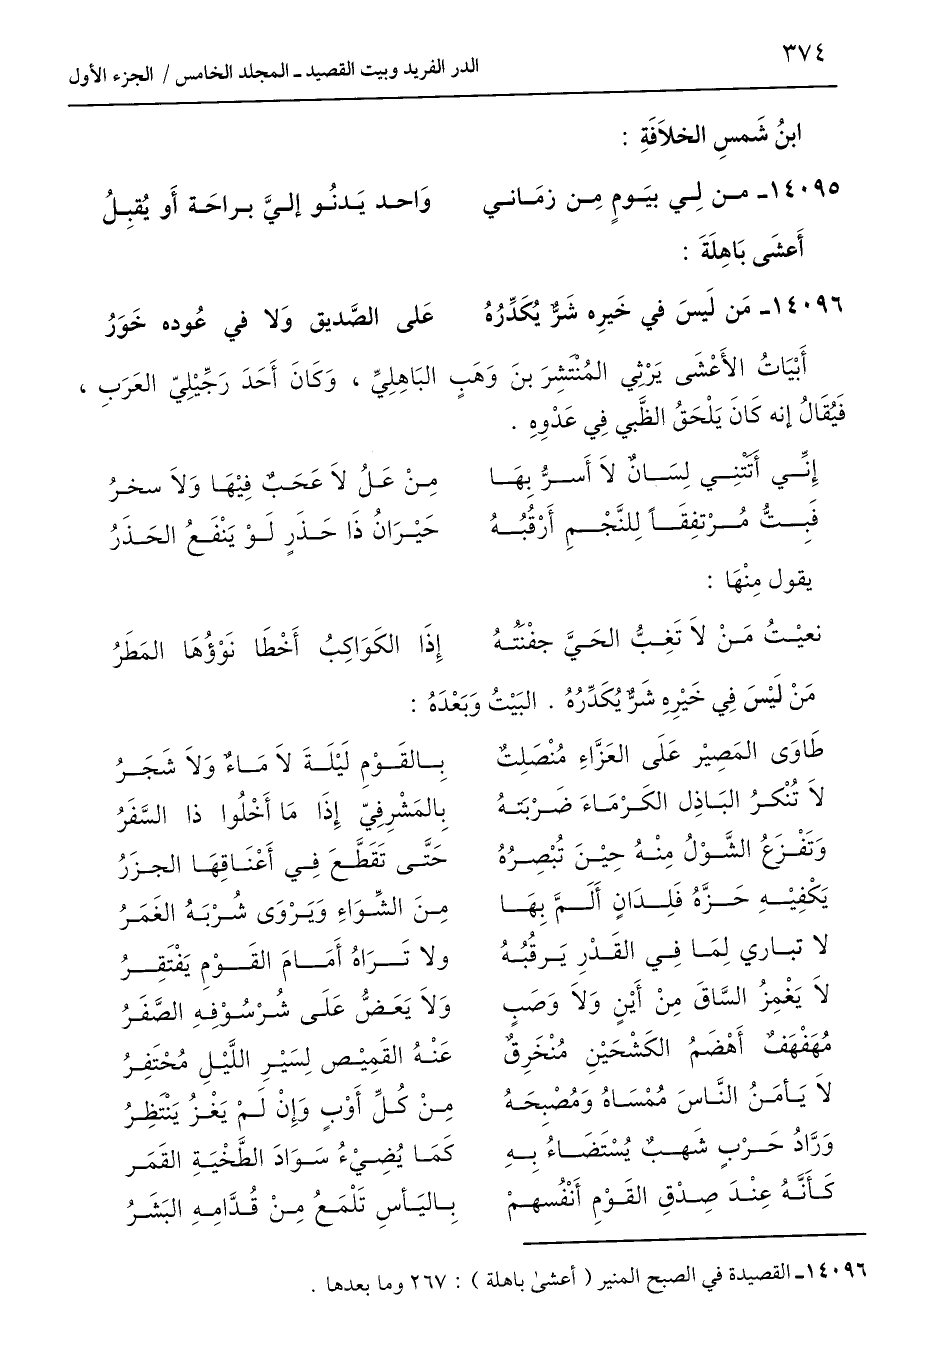 ٣٧٤
الدر الفريد وبيت القصيد ـ المجلد الخامس / الجزء الأول
ابنُ شَمسِ الخلاَفَةِ :
١٤٠٩٥ـ مـن لِـي بيَـومٍ مِـن زمَـانـي وَاحـد يَـدنُـو إلـيَّ بـراحَـة أو يُقبِـلُ
أعشَى بَاهِلَةَ :
١٤٠٩٦ـ مَن لَيسَ في خَيرِه شَرٌّ يُكَدِّرُهُ عَلى الصَّديق وَلا في عُوده خَوَرُ
أبْيَاتُ الأعْشَى يَرْثِي المُنْتَشِرَ بنَ وَهَبٍ البَاهِليِّ ، وَكَانَ أحَدَ رَجِّيْلِيّ العَرَبِ ،
فَيُقَالُ إنه كَانَ يَلْحَقُ الظَّبي فِي عَدْوِهِ .
إنِّـي أتَتْنِـي لِسَـانٌ لاَ أسـرُّ بِهَـا مِـنْ عَـلُ لاَ عَجَـبٌ فِيْهَـا وَلاَ سخـرُ
فَبِـتُّ مُـرْتفِقَـاً لِلنَّجْـمِ أرْقُبُـهُ حَيْـرَانُ ذَا حَـذَرٍ لَـوْ يَنْفَـعُ الحَـذَرُ
يقول مِنْهَا :
نعيْـتُ مَـنْ لاَ تَغِـبُّ الحَـيَّ جفْنَتُـهُ إِذَا الكَوَاكِبُ أخْطَا نَوْؤُهَا المَطَرُ
مَنْ لَيْسَ فِي خَيْرِهِ شَرٌّ يُكَدِّرُهُ . البَيْتُ وَبَعْدَهُ :
طَاوَى المَصِيْرِ عَلَى العَزَّاءِ مُنْصَلِتٌ بِـالقَـوْمِ لَيْلَـةَ لاَ مَـاءٌ وَلاَ شَجَـرُ
لاَ تُنْكـرُ البَـاذِل الكَـرْمَـاءَ ضَـرْبَتَـهُ بِالمَشْرِفيِّ إِذَا مَا أخْلُوا ذا السَّفَرُ
وَتَفْـزَعُ الشَّـوْلُ مِنْـهُ حِيْـنَ تُبْصِـرُهُ حَتَّـى تَقَطَّـعَ فِـي أعْنَـاقِهَـا الجـزَرُ
يَكْفِيْـهِ حَـزَّةُ فَلِـذَانٍ ألَـمَّ بِهَـا مِـنَ الشِّـوَاءِ وَيَـرْوَى شُـرْبَـهُ الغَمَـرُ
لا تبـاري لِمَـا فـي القَـدْرِ يَـرقُبُـهُ ولا تَـرَاهُ أمَـامَ القَـوْمِ يَقْتَفِـرُ
لاَ يَغْمِزُ السَّاقَ مِنْ أيْنٍ وَلاَ وَصَبٍ وَلاَ يَعَـضُّ عَلَـى شُـرْسُـوْفِـهِ الصَّفَـرُ
مُهَفْهَفٌ أهْضَمُ الكَشْحَيْنِ مُنْخَرِقٌ عَنْـهُ القَمِيْـص لِسَيْـرِ اللَّيْـلِ مُحْتَقِـرُ
لاَ يَـأمَـنُ النَّـاسَ مُمْسَـاهُ وَمُصْبِحَـهُ مِـنْ كُـلِّ أوْبٍ وَإنْ لَـمْ يَغْـزُ يَنْتَظِـرُ
وَرَّادُ حَـرْبٍ شَهـبٌ يُسْتَضَـاءُ بِـهِ كَمَـا يُضِـيْءُ سَـوَادَ الطَّخْيَـةِ القَمَـرِ
كَـأنَّـهُ عِنْـدَ صِـدْقِ القَـوْمِ أنْفُسهـمْ بِـاليَـأسِ تَلْمَـعُ مِـنْ قُـدَّامِـهِ البَشَـرُ
١٤٠٩٦ـ القصيدة في الصبح المنير ( أعشىٰ باهلة ) : ٢٦٧ وما بعدها .